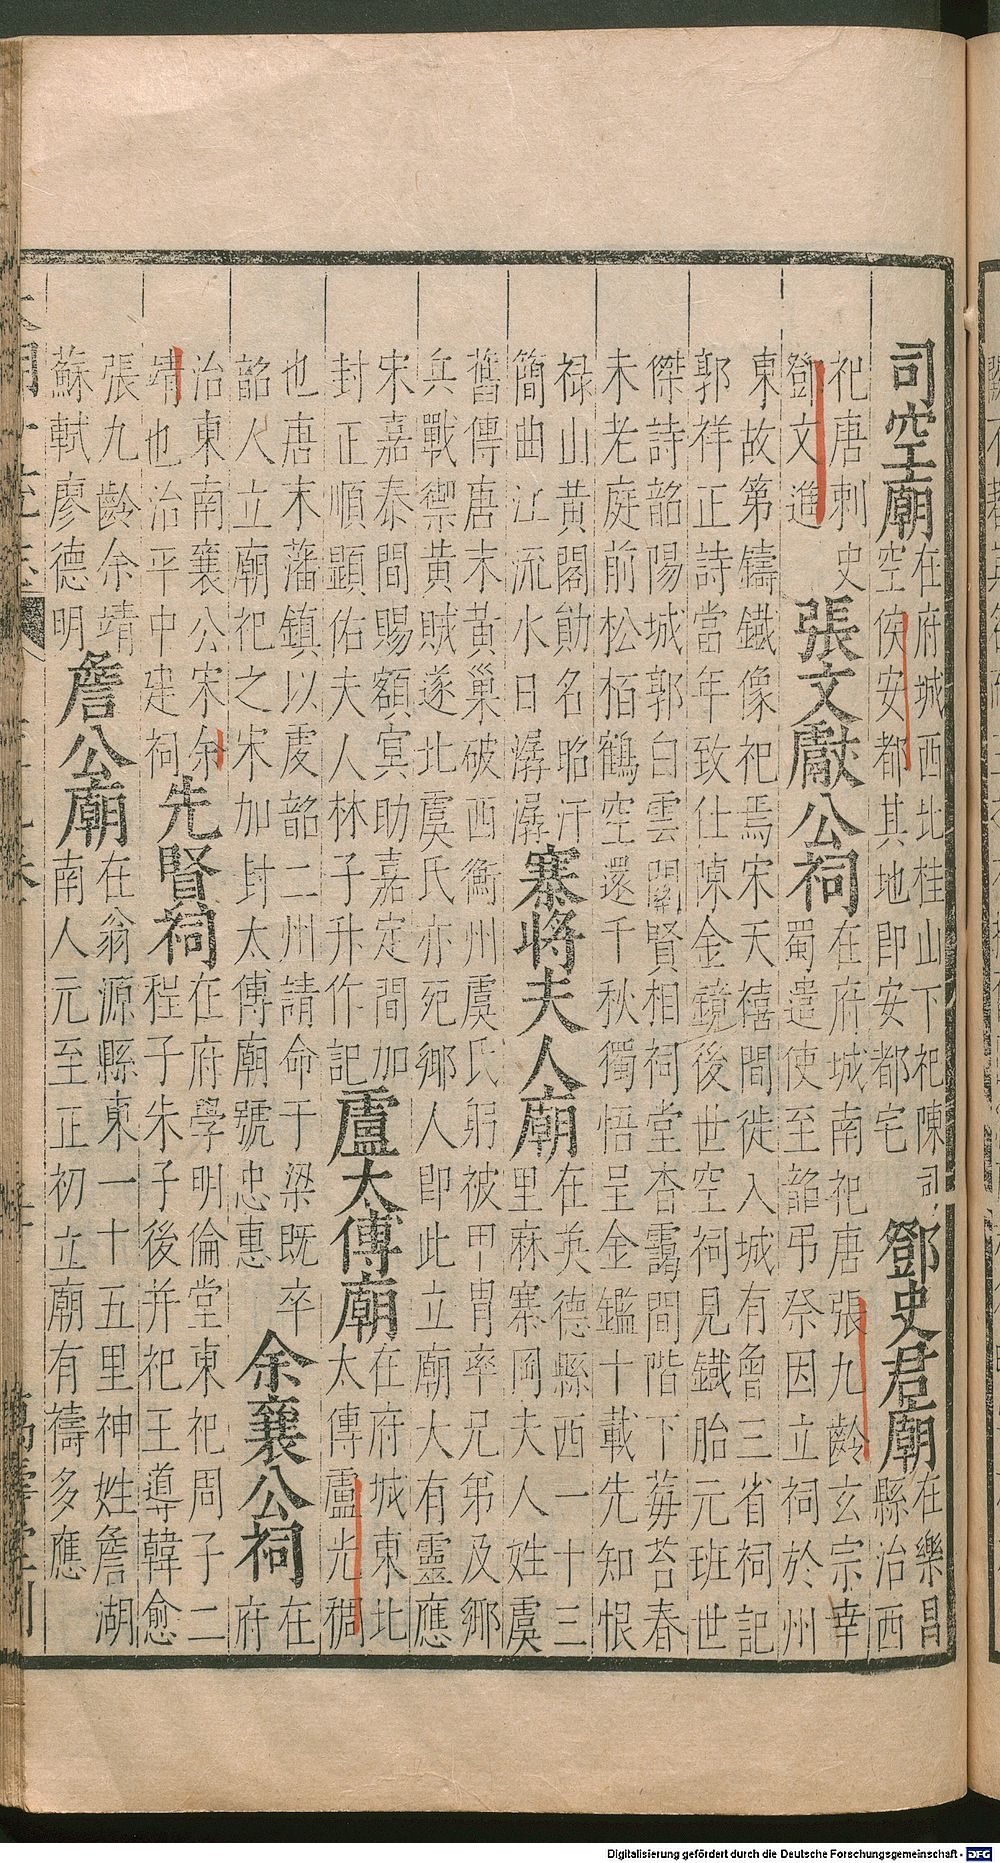 司空廟
在府城西北桂山下祀陳司
空侯安都其地即安都宅
鄧史君廟
在樂昌
縣治西
祀唐刺史
鄧文進
張文獻公祠
在府城南祀唐張九齡玄宗幸
蜀遣使至韶弔祭因立祠於州
東故第鑄鐵像祀焉宋天禧間徙入城有曾三省祠記
郭祥正詩當年致仕陳金鏡後世空祠見鐵胎元班世
傑詩韶陽城郭白雲賢相祠堂杳靄間階下莓苔春
未老庭前松栢鶴空還千秋獨悟呈金鑑十載先知恨
祿山黃閣勛名昭汗
簡曲江流水日潺潺
寨將夫人廟
在英德縣西一十三
里麻寨岡夫人姓虞
舊傳唐末黃巢破西衡州虞氏躬被甲冑率兄弟及鄉
兵戰禦黃賊遂北虞氏亦死鄉人即此立廟大有靈應
宋嘉泰間賜額冥助嘉定間加
封正順顯佑夫人林子升作記
盧太傅廟
在府城東北
太傅盧光稠
也唐末藩鎮以虔韶二州請命于梁既卒
韶人立廟祀之宋加封太傅廟號忠惠
余襄公祠
在
府
治東南襄公宋余
靖也治平中建祠
先賢祠
在府學明倫堂東祀周子二
程子朱子後并祀王導韓愈
張九齡余靖
蘇軾廖德明
詹公廟
在翁源縣東一十五里神姓詹湖
南人元至正初立廟有禱多應
萬壽堂刊
Digitalisierung gefördert durch die Deutsche Forschungsgemeinschaft - DFG